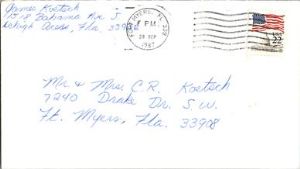 James Koetsch
1518 Bahama Ave S
Lehigh Acres, Fla. 33936
FORT MYERS, FL 339
PM
28 SEP
1987
22
Mr. & Mrs. C.R. Koetsch
7240 Drake Dr. S.W.
Ft. Myers, Fla. 33908